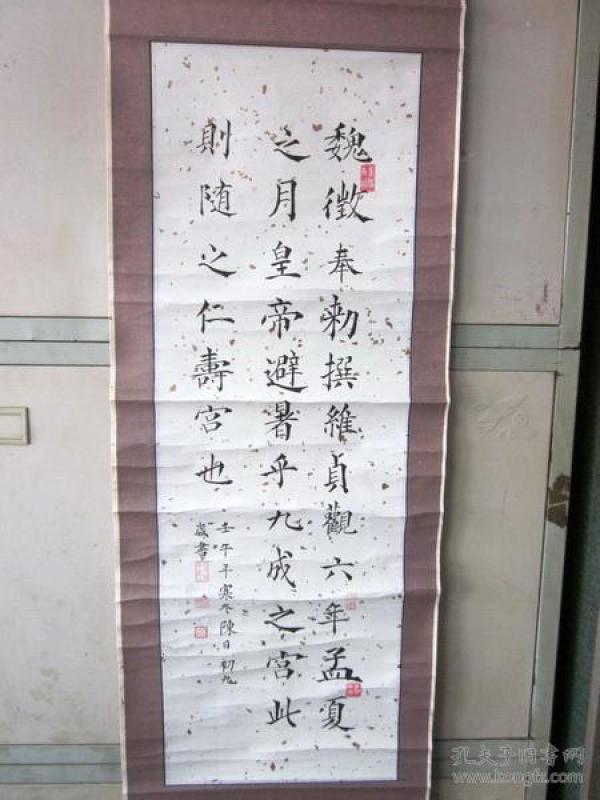 魏徵奉勅撰維貞觀六年孟夏
之月皇帝避暑乎九成之宮此
則随之仁壽宮也
壬午年寒冬陳日初九
歲書
孔夫子旧書网
www.kongfz.com